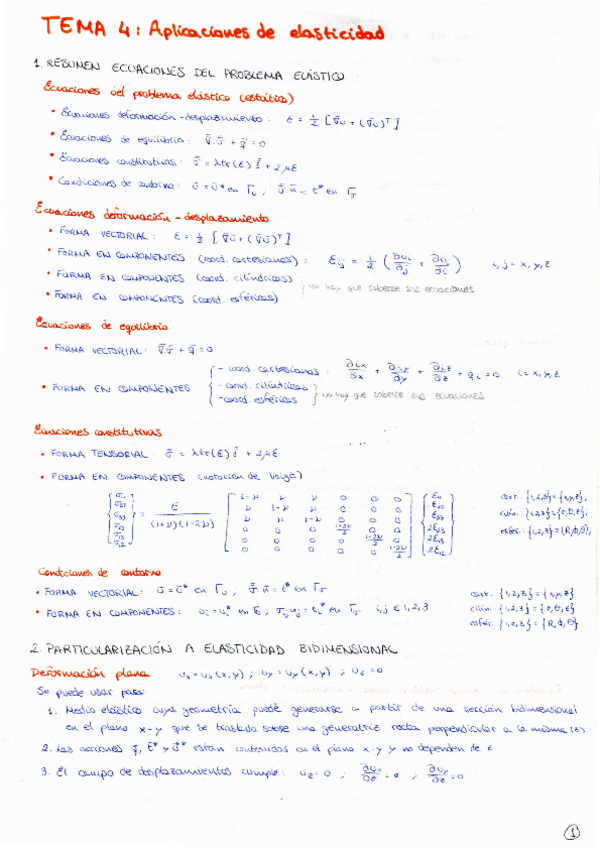 TEMA 4: Aplicaciones de elasticidad
1. RESUMEN ECUACIONES DEL PROBLEMA ELÁSTICO
Ecuaciones del problema elástico (estático)
• Ecuaciones deformación-desplazamiento: ε = 1/2 [∇̄ū + (∇̄ū)ᵀ]
• Ecuaciones de equilibrio: ∇̄·σ̄ + q̄ = 0
• Ecuaciones constitutivas: σ̄ = λtr(ε)Ī + 2με
• Condiciones de contorno: ū = ū* en Γᵤ ; σ̄·n̄ = t̄* en Γσ
Ecuaciones deformación-desplazamiento
• FORMA VECTORIAL: ε = 1/2 [∇̄ū + (∇̄ū)ᵀ]
• FORMA EN COMPONENTES (coord. cartesianas): εij = 1/2 (∂ui/∂j + ∂uj/∂i) i,j = x,y,z
• FORMA EN COMPONENTES (coord. cilíndricas)
• FORMA EN COMPONENTES (coord. esféricas) } no hay que saberse sus ecuaciones
Ecuaciones de equilibrio
• FORMA VECTORIAL: ∇̄·σ̄ + q̄ = 0
• FORMA EN COMPONENTES { - coord. cartesianas: ∂σix/∂x + ∂σiy/∂y + ∂σiz/∂z + qi = 0 i = x,y,z
- coord. cilíndricas
- coord. esféricas } no hay que saberse sus ecuaciones
Ecuaciones constitutivas
• FORMA TENSORIAL: σ̄ = λtr(ε)Ī + 2με
• FORMA EN COMPONENTES (notación de Voigt)
{σ11 σ22 σ33 σ23 σ13 σ12} = E/((1+ν)(1-2ν)) [1-ν ν ν 0 0 0
ν 1-ν ν 0 0 0
ν ν 1-ν 0 0 0
0 0 0 (1-2ν)/2 0 0
0 0 0 0 (1-2ν)/2 0
0 0 0 0 0 (1-2ν)/2] {ε11 ε22 ε33 2ε23 2ε13 2ε12}
cart.: {1,2,3} = {x,y,z}
cilín: {1,2,3} = {r,θ,z}
esfér.: {1,2,3} = {R,ϕ,θ}
Condiciones de contorno
• FORMA VECTORIAL: ū = ū* en Γᵤ ; σ̄·n̄ = t̄* en Γσ cart.: {1,2,3} = {x,y,z}
• FORMA EN COMPONENTES: ui = ui* en Γᵤ ; σij nj = ti* en Γσ i,j ∈ 1,2,3 cilín: {1,2,3} = {r,θ,z}
esfér: {1,2,3} = {R,ϕ,θ}
2. PARTICULARIZACIÓN A ELASTICIDAD BIDIMENSIONAL
Deformación plana ux = ux(x,y) ; uy = uy(x,y) ; uz = 0
Se puede usar para:
1. Medio elástico cuya geometría puede generarse a partir de una sección bidimensional
en el plano x-y que se traslada sobre una generatriz recta perpendicular a la misma (z)
2. Las acciones q̄, t̄* y ū* están contenidas en el plano x-y y no dependen de z
3. El campo de desplazamientos cumple: uz = 0 ; ∂ux/∂z = 0 ; ∂uy/∂z = 0
1